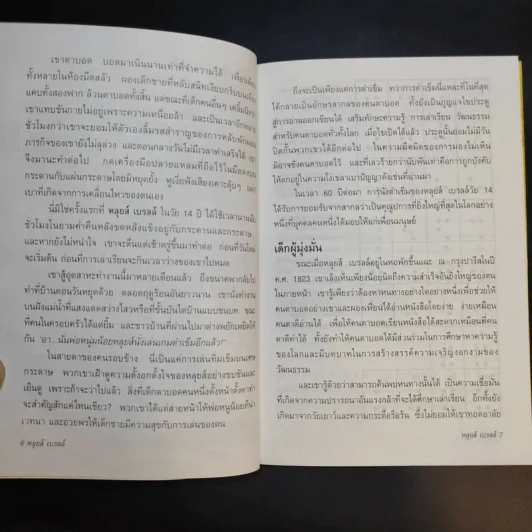 เขาตาบอด บอดมาเนิ่นนานเท่าที่จำความได้ เพื่อน
ทั้งหลายในห้องมืดสลัว ผองเด็กชายที่หลับสนิทเงียบกริบบน
แคบทั้งสองฟาก ล้วนตาบอดทั้งสิ้น แต่ขณะที่เด็กคนอื่นๆ
เขาแทบชันกายไม่อยู่เพราะความเหนื่อยล้า และเป็นเวลาอีกหลาย
ชั่วโมงกว่าเขาจะยอมให้ตัวเองลิ้มรสสำราญของการหลับพักผ่อน
ภารกิจของเขายังไม่ลุล่วง และตอนกลางวันไม่มีเวลาทำเสร็จได้ เขา
จึงมานะทำต่อไป กดเครื่องมือปลายแหลมที่ถือไว้ในมือลงบน
กระดานกับแผ่นกระดาษโดยมิหยุดยั้ง หูเงี่ยฟังเสียงเคาะตุ้บๆ แผ่ว
เบาที่เกิดจากการเคลื่อนไหวของตนเอง
นี่มิใช่ครั้งแรกที่ หลุยส์ เบรลล์ ในวัย 14 ปี ได้ใช้เวลานานนับ
ชั่วโมงในยามค่ำคืนหลังขดหลังแข็งอยู่กับกระดานและกระดาษ
และหากยังไม่หนำใจ เขาจะตื่นแต่เช้าตรู่ขึ้นมาทำต่อ ก่อนที่วันใหม่
จะเริ่มต้น ก่อนที่การเล่าเรียนจะกินเวลาว่างของเขาไปหมด
เขาสู้อุตสาหะทำงานนี้มาหลายเดือนแล้ว ถึงขนาดพากลับไป
ทำที่บ้านตอนวันหยุดด้วย ตลอดฤดูร้อนอันยาวนาน เขานั่งทำงาน
บนฝั่งแม่น้ำที่แสงแดดสว่างไสวหรือที่ขั้นบันไดบ้านแบบชนบท ขณะ
ที่คนในครอบครัวได้แต่ยิ้ม และชาวบ้านที่ผ่านไปมาต่างพยักเพยิดให้
กัน ‘อา...นั่นพ่อหนุ่มน้อยหลุยส์นั่งเล่นเกมตำเข็มอีกแล้ว!’
ในสายตาของคนรอบข้าง นี่เป็นแค่การเล่นทิ่มเข็มบนเศษ
กระดาษ พวกเขาเฝ้าดูความตั้งอกตั้งใจของหลุยส์อย่างขบขันและ
เอ็นดู เพราะถ้าจะว่าไปแล้ว สิ่งที่เด็กตาบอดคนหนึ่งตั้งหน้าตั้งตาทำ
จะสำคัญสักแค่ไหนเชียว? พวกเขาได้แต่ส่ายหน้าให้พ่อหนูน้อยที่น่า
เวทนา และอวยพรให้เด็กชายมีความสุขกับการเล่นของตน
6 หลุยส์ เบรลล์
ถึงจะเป็นเพียงแค่การตำเข็ม ทว่าการตำเข็มนี่แหละที่ในที่สุด
ได้กลายเป็นอักษรสากลของคนตาบอด ทั้งยังเป็นกุญแจไขประตู
สู่การอ่านออกเขียนได้ เสริมทักษะความรู้ การเล่าเรียน วัฒนธรรม
สำหรับคนตาบอดทั่วทั้งโลก เมื่อไขเปิดได้แล้ว ประตูนั้นย่อมไม่มีวัน
ปิดกั้นพวกเขาได้อีกต่อไป – ในความมืดมิดของการมองไม่เห็น
มิอาจขังคนตาบอดไว้ และที่เลวร้ายกว่านับพันเท่าคือการถูกบังคับ
ให้ตกอยู่ในความโง่เขลาเบาปัญญาดังเช่นที่ผ่านมา
ในเวลา 60 ปีต่อมา การนั่งตำเข็มของหลุยส์ เบรลล์วัย 14
ได้รับการยอมรับจากสากลว่าเป็นคุณูปการที่ยิ่งใหญ่ที่สุดในโลกอย่าง
หนึ่งที่บุคคลคนหนึ่งได้มอบให้แก่เพื่อนมนุษย์
เด็กผู้มุ่งมั่น
ขณะเมื่อหลุยส์ เบรลล์อยู่ในหอพักชื้นแฉะ ณ กรุงปารีสในปี
ค.ศ. 1823 เขาเล็งเห็นเพียงน้อยนิดถึงความสำเร็จอันยิ่งใหญ่ของตน
ในภายหน้า เขารู้เพียงว่าต้องหาหนทางอย่างใดอย่างหนึ่งเพื่อช่วยให้
คนตาบอดอย่างเขาและผองเพื่อนได้อ่านหนังสือโดยง่าย ง่ายเหมือน
คนตาดีอ่านได้ เพื่อให้คนตาบอดเขียนหนังสือได้สะดวกเหมือนที่คน
ตาดีทำได้ ทั้งยังทำให้คนตาบอดได้มีส่วนร่วมในการศึกษาหาความรู้
ของโลกและมีบทบาทในการสร้างสรรค์ความเจริญงอกงามของ
วัฒนธรรม
และเขารู้ด้วยว่าสามารถค้นพบหนทางนั้นได้ เป็นความเชื่อมั่น
ที่เกิดจากความปรารถนาอันแรงกล้าที่จะได้ศึกษาเล่าเรียน อีกทั้งยัง
เกิดมาจากวัยเยาว์และความกระตือรือร้น ซึ่งไม่ยอมให้เขาทอดอาลัย
หลุยส์ เบรลล์ 7